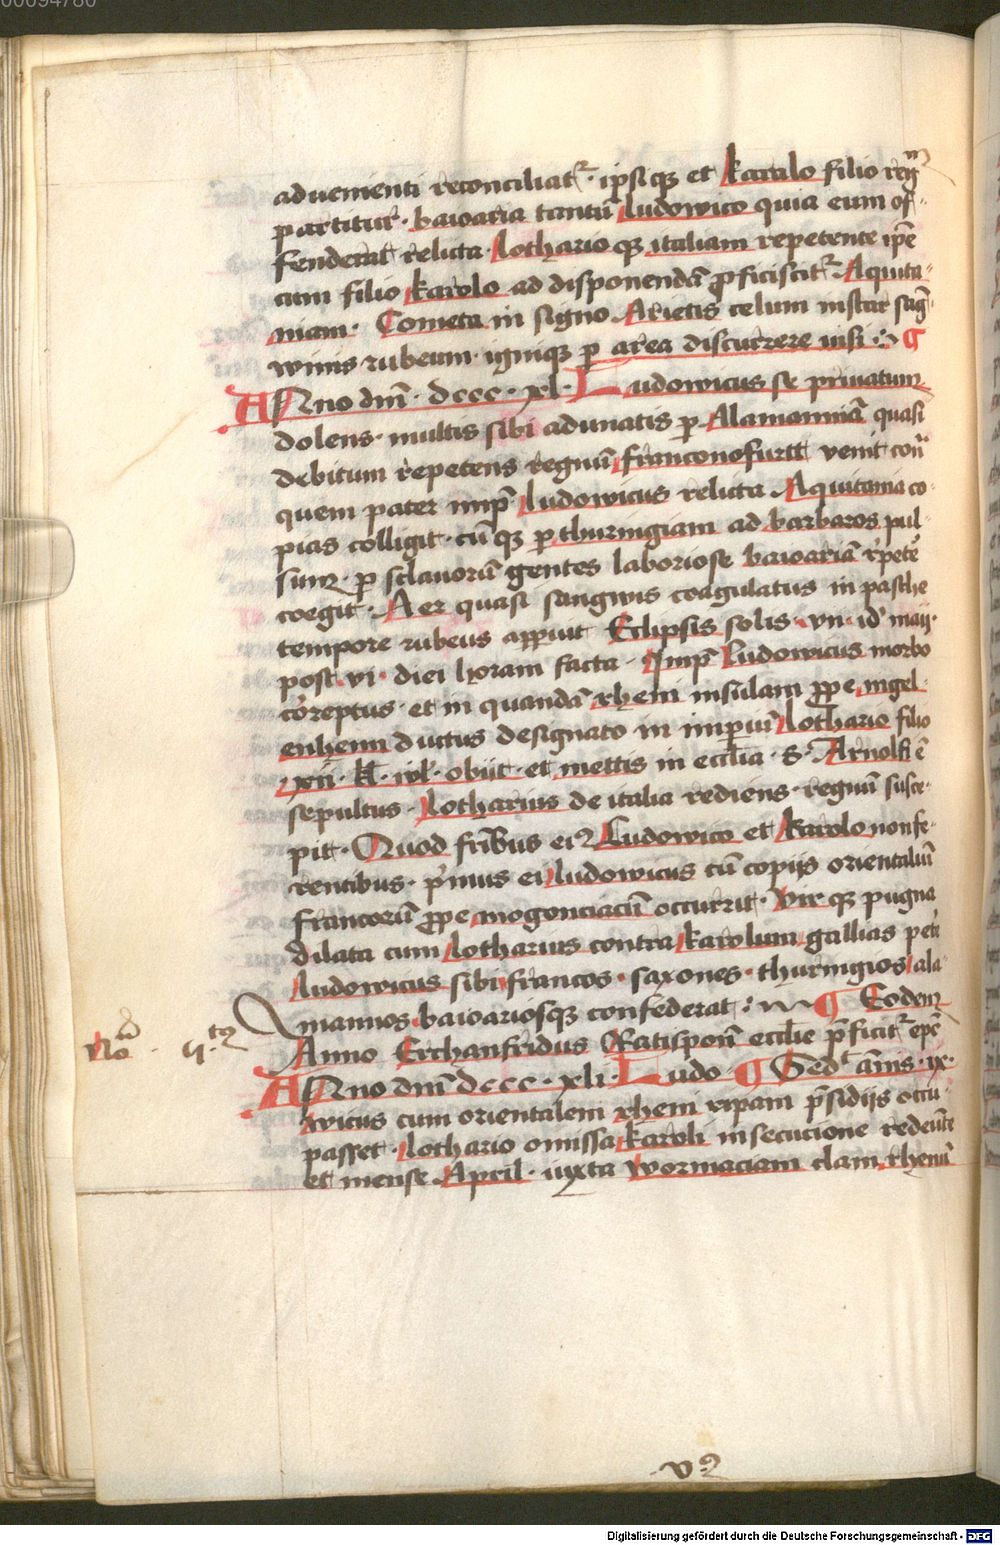 00094780
aduenienti reconciliat². ipsiqꝫ et karolo filio regnū
partitur. baioaria tantū ludowico quia eum of-
fenderat relicta. lothario qꝫ italiam repetente ip̄e
cum filio karolo ad disponendā ꝓficiscit² Aquita-
niam. Cometa in signo Arietis celum instar sāg-
winis rubeum. igniqꝫ ꝑ aera discurrere uisi ¶
Anno dnī. dccc. xl. Ludowicus se priuatum
dolens. multis sibi adunatis ꝑ Alamanniā quasi
debitum repetens regnū franconofurtt venit cont̄
quem pater imp̄ ludowicus relicta Aquitania co-
pias colligit. cū qꝫ ꝑ thuringiam ad barbaros pul-
sum. ꝑ sclauorū gentes laboriose baioariā r̄pete
coegit. Aer quasi sangwis coagulatus in pasche
tempore rubeus apparuit Eclipsis solis. vn. id' maij.
post. vi. diei horam facta. Imp̄ Ludowicus morbo
correptus. et in quandā rheni insulam ꝓpe ingel-
enheim ductus designato in imꝑiū lothario filio
xn. kl. iul. obijt. et mettis in ecclīa. S. Arnolfi ē
sepultus. Lotharius de italia rediens. regnū susce-
pit. Quod fr̄ibus ei² Ludowico et karolo non fe-
rentibus. p̄mus ei ludowicus cū copijs orientaliū
francorū ꝓpe mogonciaciū occurrit. Vir qꝫ pugna
dilata cum lotharius contra karolum gallias petit
ludowicus sibi francos. saxones. thuringios ala-
mannos. baioariosqꝫ confederat: ¶ Eodem
Anno Erchanfridus Ratisponn̄ ecclie p̄ficit² ep̄c
Anno dnī dccc. xli. Ludo- ¶ Sed' annis. ix.
wicus cum orientalem rheni ripam p̄sidijs occu-
passet. lothario omissa karoli insecucione redeūte
et mense April. iuxta wormaciam clam rhenū
v²
Digitalisierung gefördert durch die Deutsche Forschungsgemeinschaft - DFG